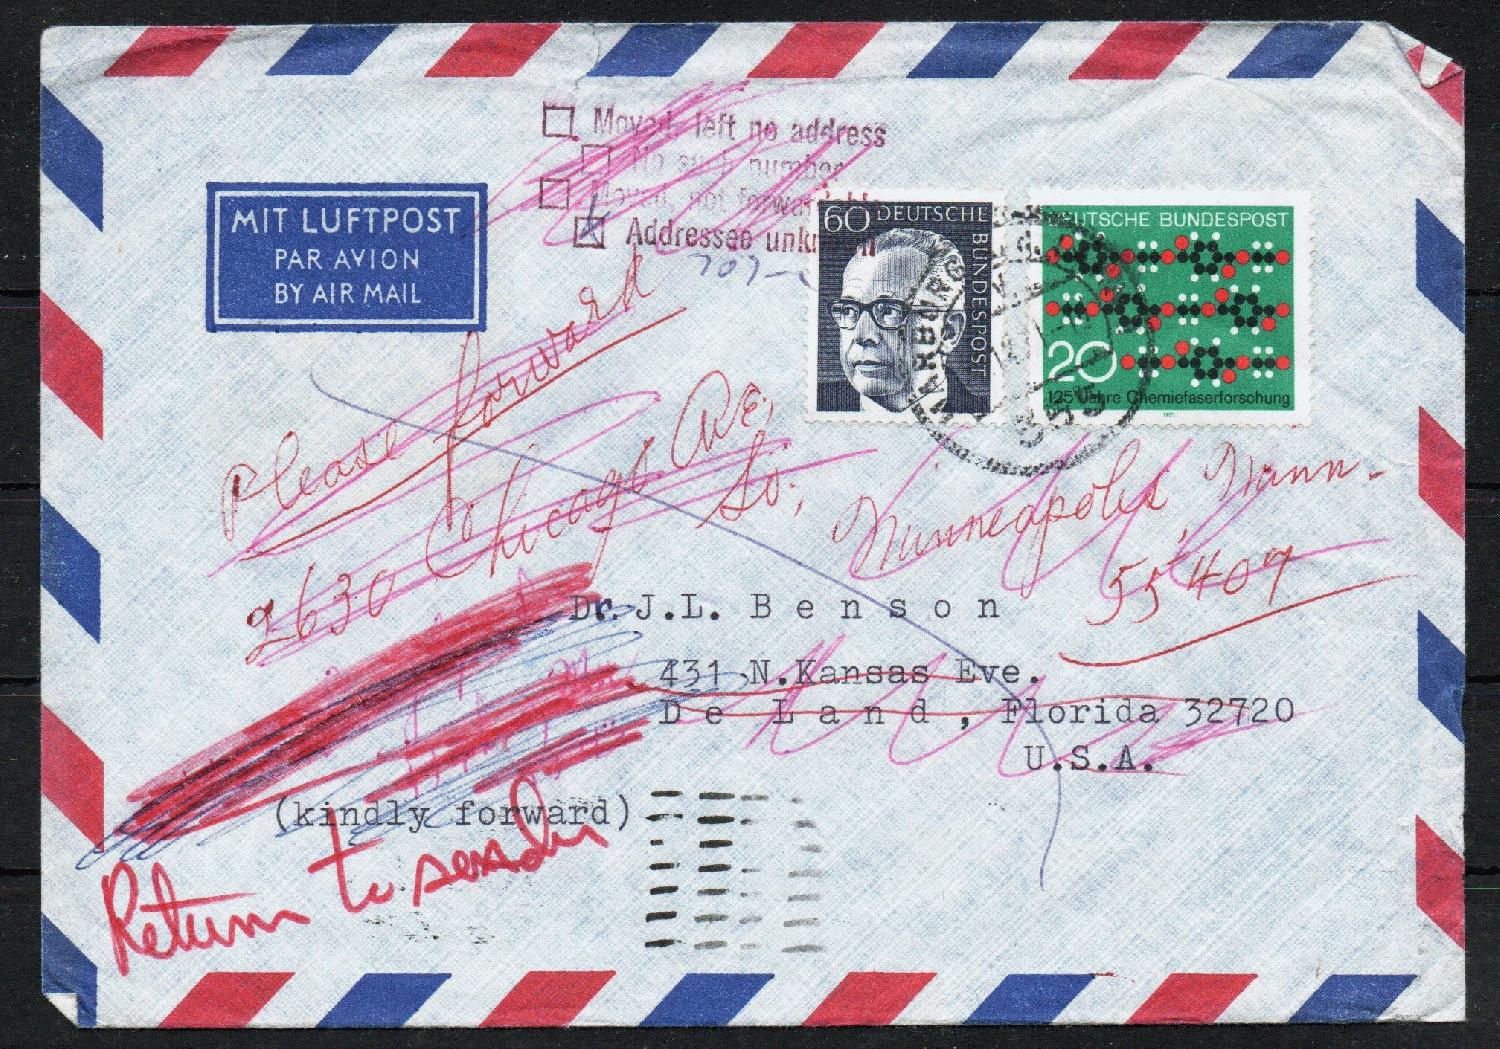 Moved, left no address
No such number
Moved, not forwardable
Addressee unknown
707-
MIT LUFTPOST
PAR AVION
BY AIR MAIL
60 DEUTSCHE
BUNDESPOST
DEUTSCHE BUNDESPOST
20
125 Jahre Chemiefaserforschung
1971
MARBURG
355
Please forward
2630 Chicago Ave,
So., Minneapolis, Minn.
55409
Dr. J.L. Benson
431 N.Kansas Eve.
De Land, Florida 32720
U.S.A.
(kindly forward)
Return to sender